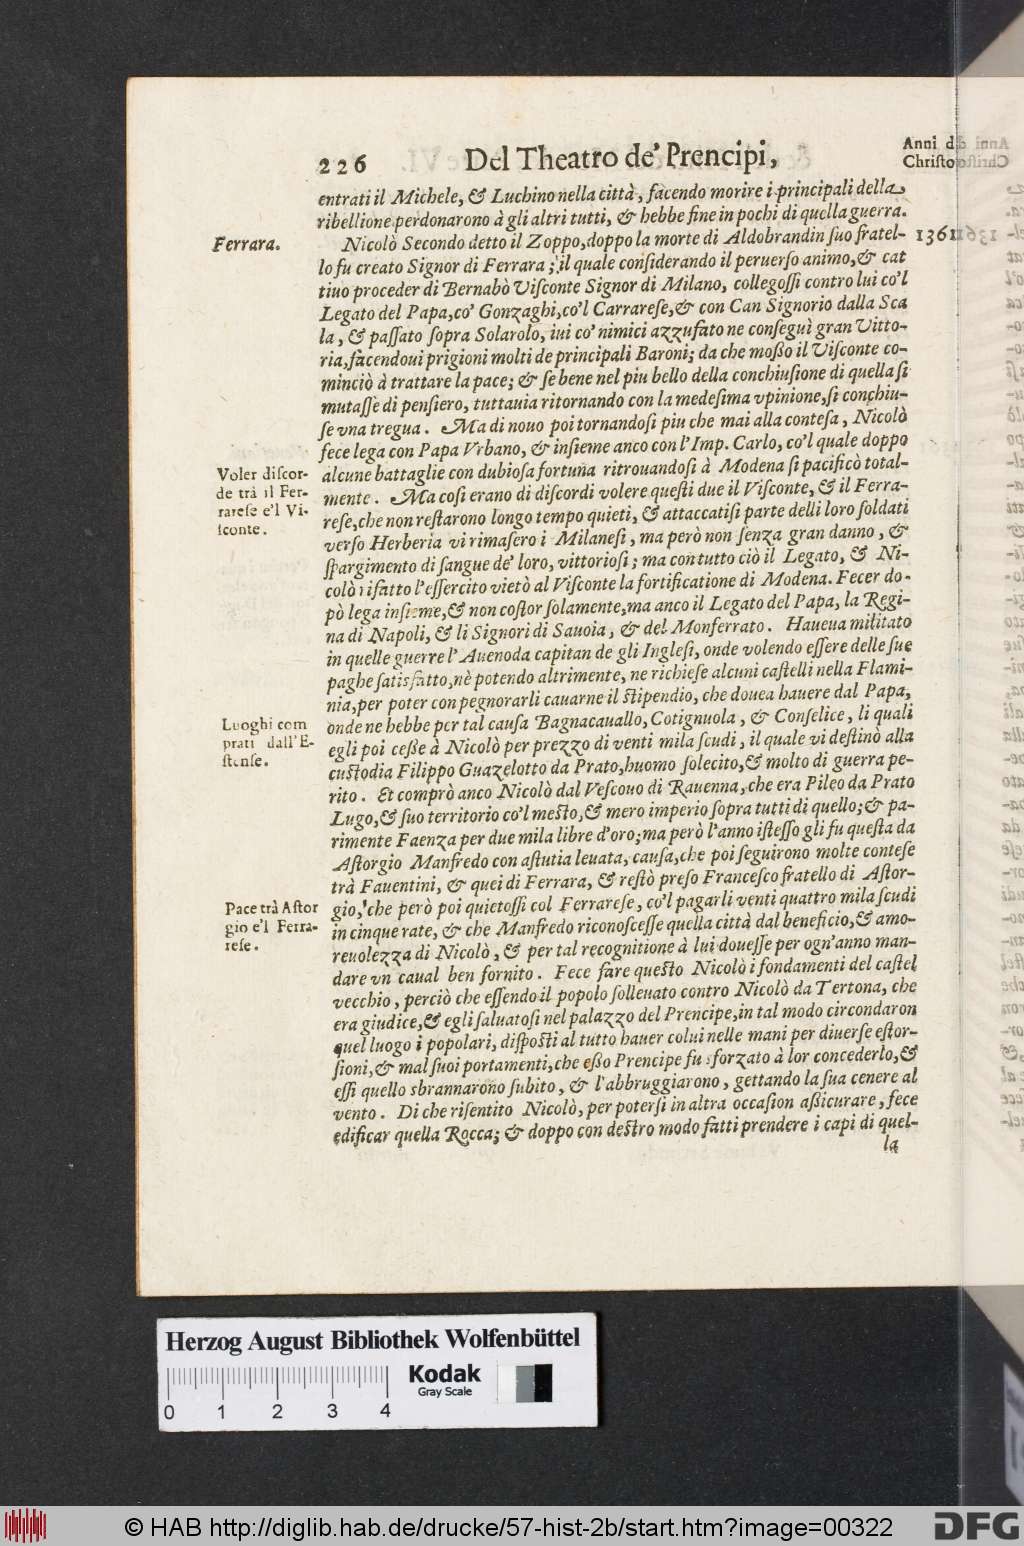 226 Del Theatro de' Prencipi,
Anni di
Christo
entrati il Michele, & Luchino nella città, facendo morire i principali della
ribellione perdonarono à gli altri tutti, & hebbe fine in pochi di quella guerra.
Ferrara.
Nicolò Secondo detto il Zoppo, doppo la morte di Aldobrandin ſuo fratel-
1361
lo fu creato Signor di Ferrara; il quale conſiderando il peruerſo animo, & cat
tiuo proceder di Bernabò Viſconte Signor di Milano, collegoſſi contro lui co'l
Legato del Papa, co' Gonzaghi, co'l Carrareſe, & con Can Signorio dalla Sca
la, & paſſato ſopra Solarolo, iui co' nimici azzufato ne conſeguì gran Vitto-
ria, facendoui prigioni molti de principali Baroni; da che moßo il Viſconte co-
minciò à trattare la pace; & ſe bene nel piu bello della conchiuſione di quella ſi
mutaſſe di penſiero, tuttauia ritornando con la medeſima vpinione, ſi conchiu-
ſe vna tregua. Ma di nouo poi tornandoſi piu che mai alla conteſa, Nicolò
fece lega con Papa Vrbano, & inſieme anco con l'Imp. Carlo, co'l quale doppo
alcune battaglie con dubioſa fortuna ritrouandoſi à Modena ſi pacificò total-
Voler diſcor-
de trà il Fer-
rareſe e'l Vi-
ſconte.
mente. Ma coſi erano di diſcordi volere queſti due il Viſconte, & il Ferra-
reſe, che non reſtarono longo tempo quieti, & attaccatiſi parte delli loro ſoldati
verſo Herberia vi rimaſero i Milaneſi, ma però non ſenza gran danno, &
ſpargimento di ſangue de' loro, vittorioſi; ma con tutto ciò il Legato, & Ni-
colò rifatto l'eſſercito vietò al Viſconte la fortificatione di Modena. Fecer do-
pò lega inſieme, & non coſtor ſolamente, ma anco il Legato del Papa, la Regi-
na di Napoli, & li Signori di Sauoia, & del Monferrato. Haueua militato
in quelle guerre l'Auenoda capitan de gli Ingleſi, onde volendo eſſere delle ſue
paghe ſatisfatto, nè potendo altrimente, ne richieſe alcuni caſtelli nella Flami-
nia, per poter con pegnorarli cauarne il ſtipendio, che douea hauere dal Papa,
Luoghi com
prati dall'E-
ſtenſe.
onde ne hebbe per tal cauſa Bagnacauallo, Cotignuola, & Conſelice, li quali
egli poi ceße à Nicolò per prezzo di venti mila ſcudi, il quale vi deſtinò alla
cuſtodia Filippo Guazelotto da Prato, huomo ſolecito, & molto di guerra pe-
rito. Et comprò anco Nicolò dal Veſcouo di Rauenna, che era Pileo da Prato
Lugo, & ſuo territorio co'l meſto, & mero imperio ſopra tutti di quello; & pa-
rimente Faenza per due mila libre d'oro; ma però l'anno iſteſſo gli fu queſta da
Aſtorgio Manfredo con aſtutia leuata, cauſa, che poi ſeguirono molte conteſe
trà Fauentini, & quei di Ferrara, & reſtò preſo Franceſco fratello di Aſtor-
Pace trà Aſtor
gio e'l Ferra-
reſe.
gio, che però poi quietoſſi col Ferrareſe, co'l pagarli venti quattro mila ſcudi
in cinque rate, & che Manfredo riconoſceſſe quella città dal beneficio, & amo-
reuolezza di Nicolò, & per tal recognitione à lui doueſſe per ogn'anno man-
dare vn caual ben fornito. Fece fare queſto Nicolò i fondamenti del caſtel
vecchio, perciò che eſſendo il popolo ſolleuato contro Nicolò da Tertona, che
era giudice, & egli ſaluatoſi nel palazzo del Prencipe, in tal modo circondaron
quel luogo i popolari, diſpoſti al tutto hauer colui nelle mani per diuerſe eſtor-
ſioni, & mal ſuoi portamenti, che eßo Prencipe fu sforzato à lor concederlo, &
eſſi quello sbrannarono ſubito, & l'abbruggiarono, gettando la ſua cenere al
vento. Di che riſentito Nicolò, per poterſi in altra occaſion aßicurare, fece
edificar quella Rocca; & doppo con deſtro modo fatti prendere i capi di quel-
la
Herzog August Bibliothek Wolfenbüttel
0 1 2 3 4
Kodak
Gray Scale
© HAB http://diglib.hab.de/drucke/57-hist-2b/start.htm?image=00322
DFG